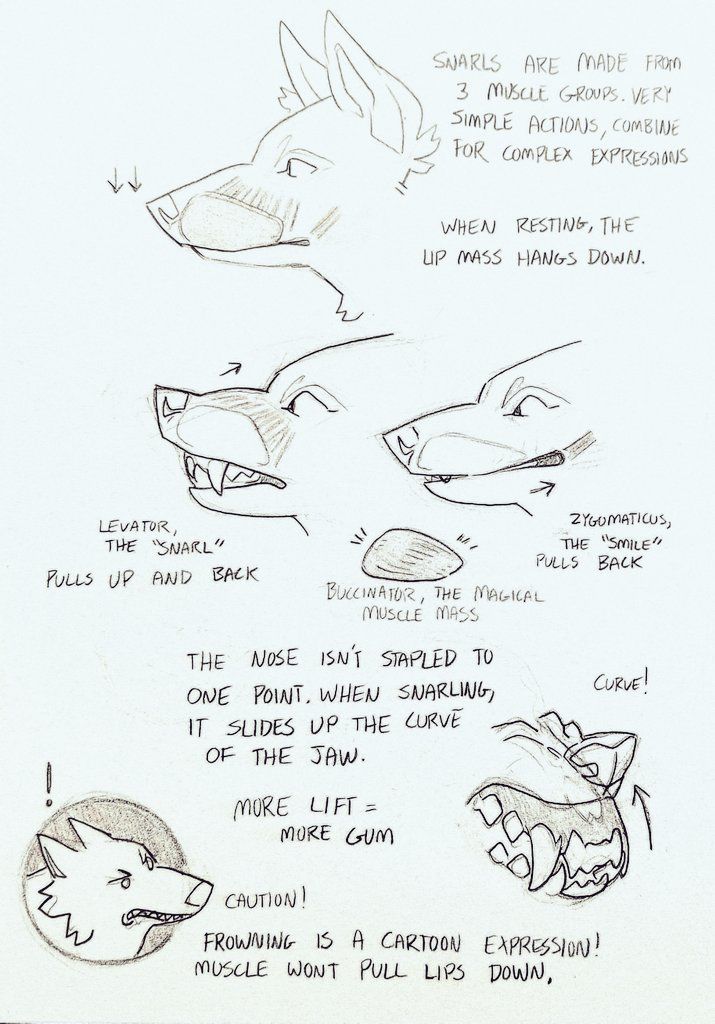 SNARLS ARE MADE FROM
3 MUSCLE GROUPS. VERY
SIMPLE ACTIONS, COMBINE
FOR COMPLEX EXPRESSIONS
WHEN RESTING, THE
LIP MASS HANGS DOWN.
LEVATOR,
THE "SNARL"
PULLS UP AND BACK
ZYGOMATICUS,
THE "SMILE"
PULLS BACK
BUCCINATOR, THE MAGICAL
MUSCLE MASS
THE NOSE ISN'T STAPLED TO
ONE POINT. WHEN SNARLING,
IT SLIDES UP THE CURVE
OF THE JAW.
CURVE!
MORE LIFT =
MORE GUM
!
CAUTION!
FROWNING IS A CARTOON EXPRESSION!
MUSCLE WONT PULL LIPS DOWN.